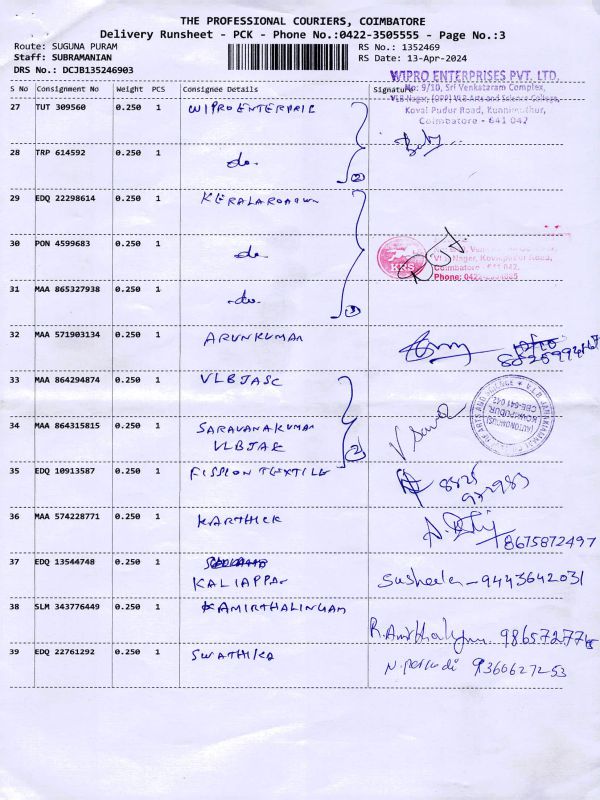 THE PROFESSIONAL COURIERS, COIMBATORE
Delivery Runsheet - PCK - Phone No.:0422-3505555 - Page No.:3
Route: SUGUNA PURAM
Staff: SUBRAMANIAN
DRS No.: DCJB135246903
RS No.: 1352469
RS Date: 13-Apr-2024
S No Consignment No Weight PCS Consignee Details Signature
WIPRO ENTERPRISES PVT. LTD.
No: 9/10, Sri Venkataram Complex,
VLB Nagar, (OPP) VLB Arts and Science College,
Kovai Pudur Road, Kuniamuthur,
Coimbatore - 641 042
27 TUT 309560 0.250 1 WIPRO ENTERPRIC
28 TRP 614592 0.250 1 do (2)
29 EDQ 22298614 0.250 1
30 PON 4599683 0.250 1 do
Nagar, Kovaipudur Road,
Coimbatore - 641 042.
Phone: 0422-
31 MAA 865327938 0.250 1 do (3)
32 MAA 571903134 0.250 1 ARUNKUMAR
33 MAA 864294874 0.250 1 VLBJASC
34 MAA 864315815 0.250 1 SARAVANAKUMAR
VLBJAS (2)
35 EDQ 10913587 0.250 1 FISSION TEXTILE
36 MAA 574228771 0.250 1 KARTHICK
8675872497
37 EDQ 13544748 0.250 1
KALIAPPAN Susheela - 9443642031
38 SLM 343776449 0.250 1 KAMIRTHALINGAM
39 EDQ 22761292 0.250 1 SWATHIKA
9360627253